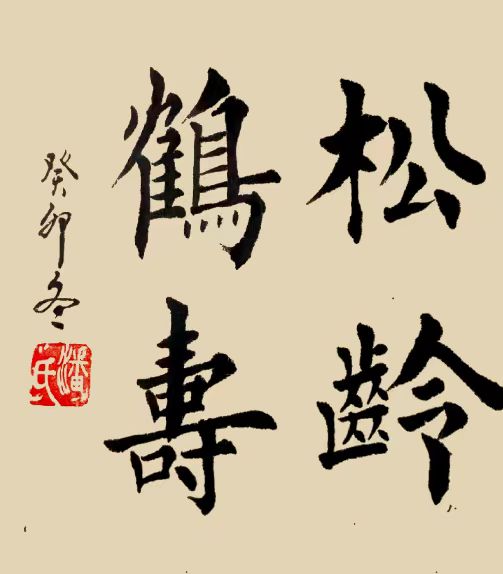 松齡
鶴壽
癸卯冬
潘氏